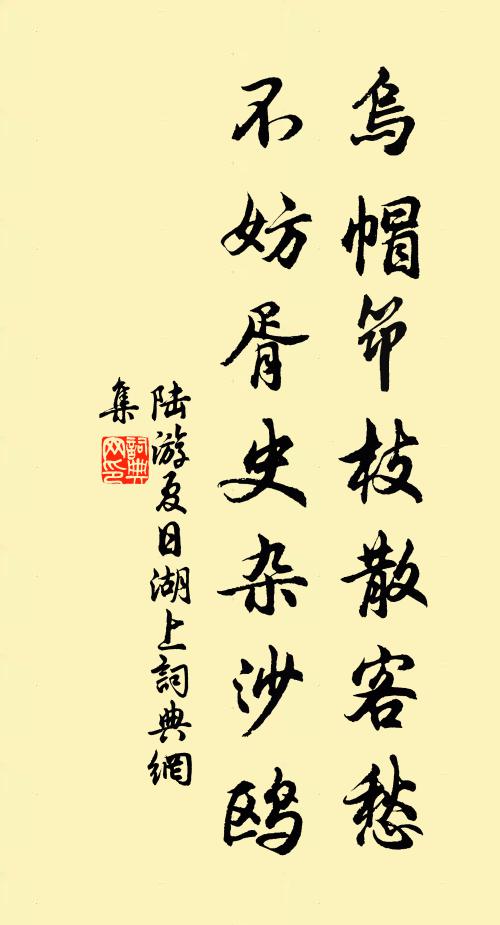 乌帽笻枝散客愁
不妨胥史杂沙鸥
陆游夏日湖上詞典網
集
詞典
网印